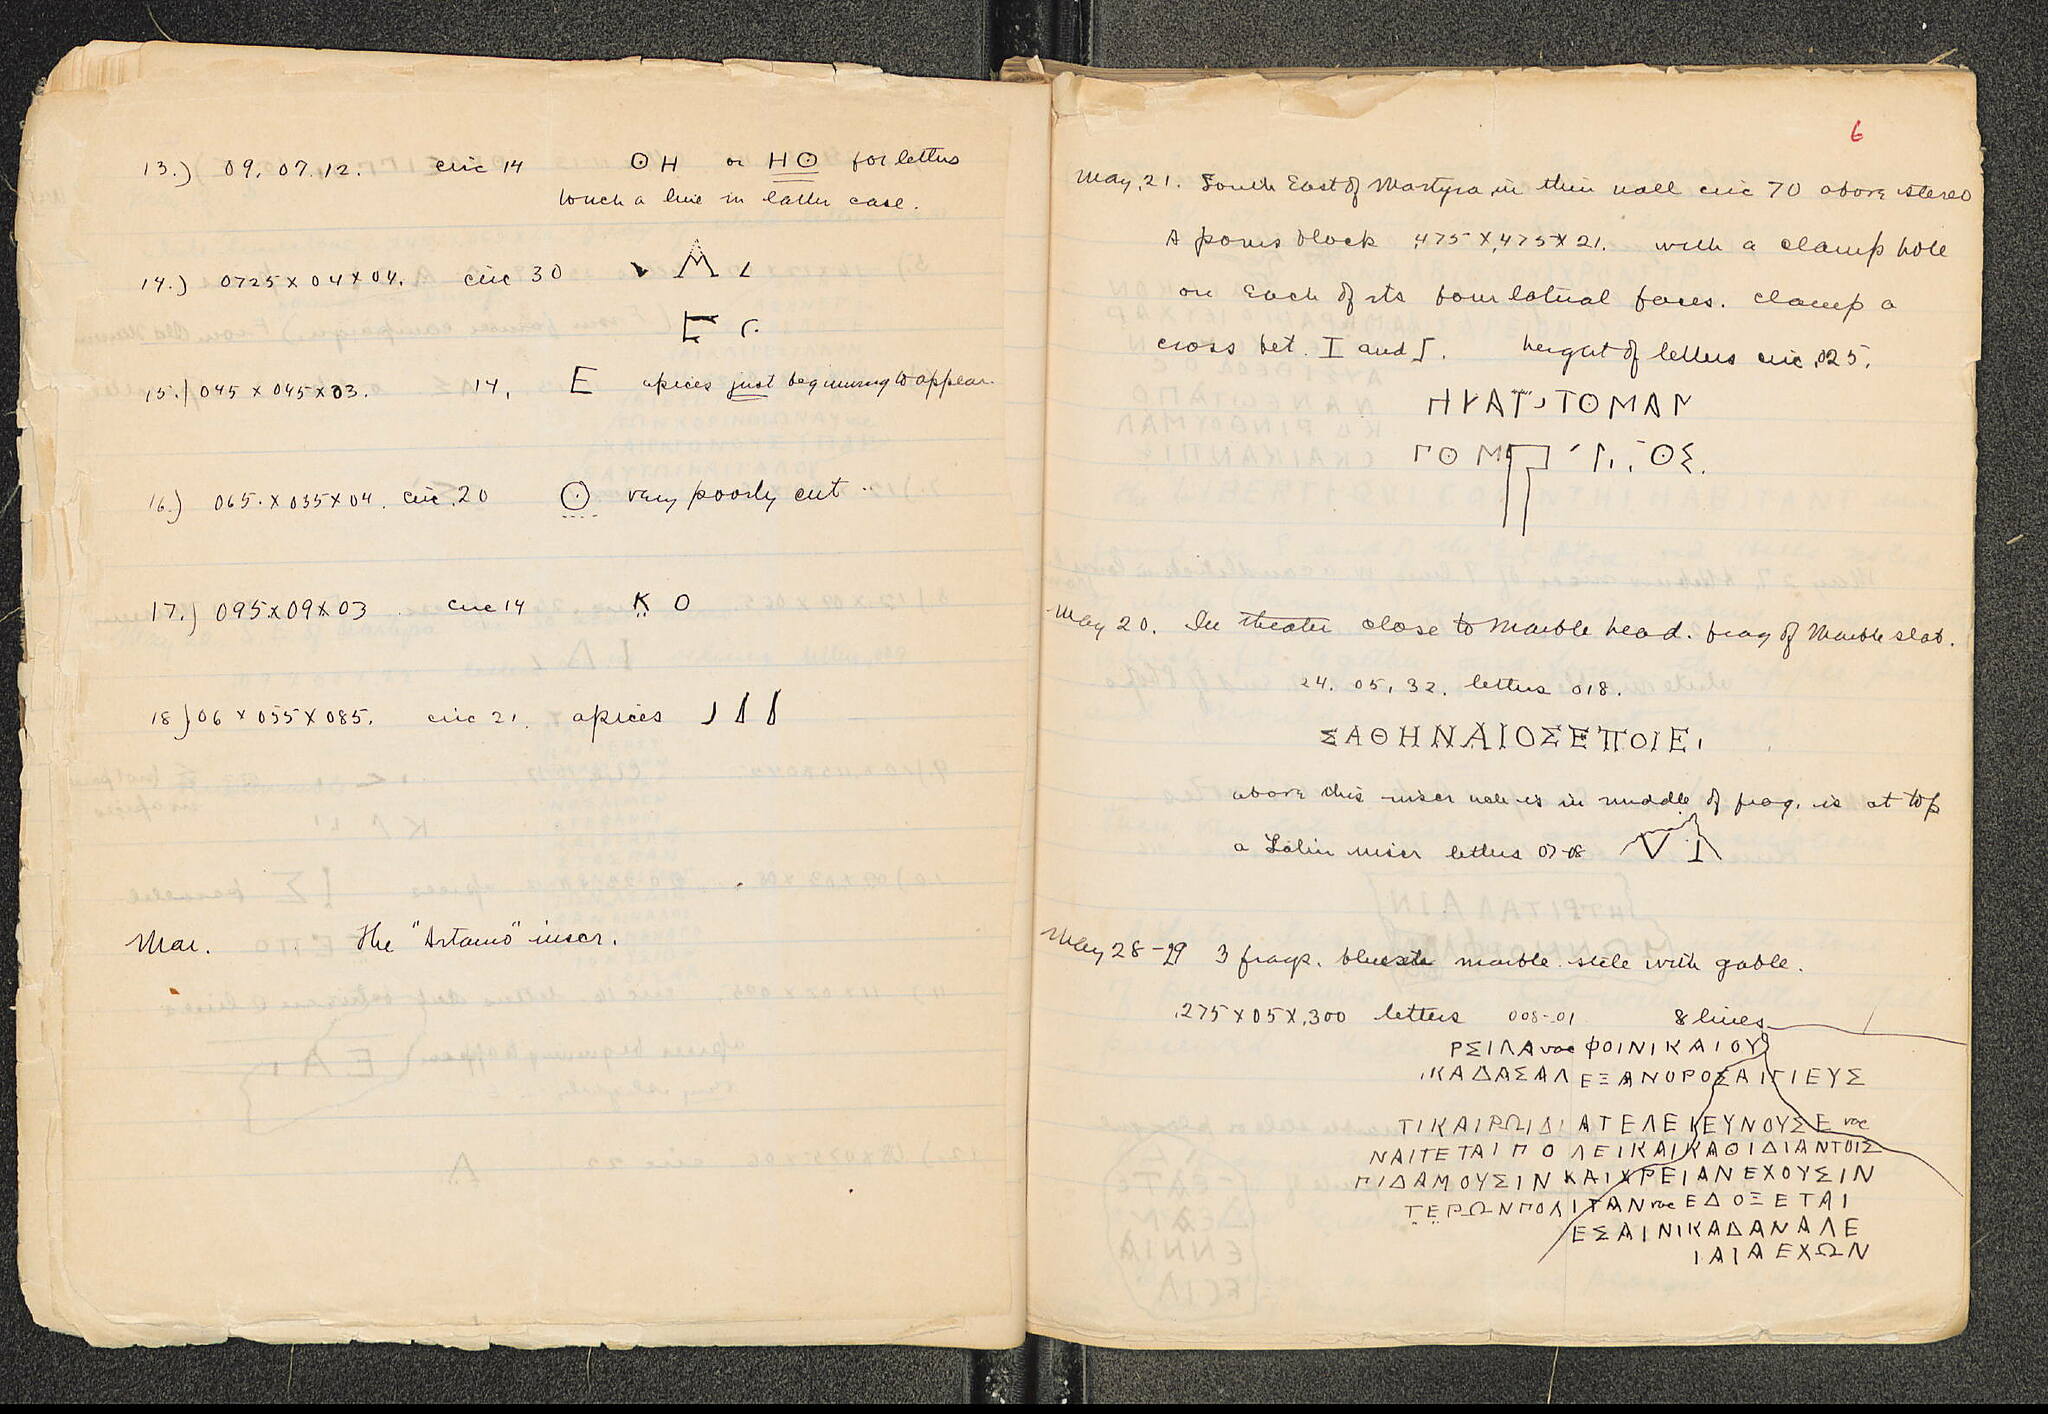 13.) 09. 07. 12. circ 14 ΘΗ or ΗΘ for letters
touch a line in latter case.
14.) 0725 x 04 x 04. circ 30 Μ
Ε
15.) 045 x 045 x 03. 14. Ε apices just beginning to appear.
16.) 065. x 035 x 04. circ. 20 Θ very poorly cut
17.) 095 x 09 x 03 circ 14 Κ Ο
18) 06 x 055 x 085. circ 21. apices
Mar. The "Artamo" inscr.
6
May. 21. South East of Martyra in thin wall circ 70 above stereo
A poros block .475 x .475 x 21. with a clamp hole
on each of its four lateral faces. clamp a
cross bet. Ι and Γ. height of letters circ .025.
ΤΟΜΑΝ
ΓΟΜ ΟΣ.
May 20. In theater close to Marble head. frag of Marble slab.
24. 05. 32. letters 018.
ΣΑΘΗΝΑΙΟΣΕΠΟΙΕΙ
above this inscr wh is in middle of frag. is at top
a Latin inscr letters 07-08 VI
May 28-29 3 frags. marble stele with gable.
.275 x 05 x .300 letters 008-01 8 lines
ΡΣΙΛΑ vac ΦΟΙΝΙΚΑΙΟΥ
.ΚΑΔΑΣΑΛΕΞΑΝΔΡΟΣΑΙΓΙΕΥΣ
ΤΙΚΑΙΡΩΙΔΙΑΤΕΛΕΙΕΥΝΟΥΣΕ vac
ΝΑΙΤΕΤΑΙΠΟΛΕΙΚΑΙΚΑΘΙΔΙΑΝΤΟΙΣ
ΠΙΔΑΜΟΥΣΙΝΚΑΙΧΡΕΙΑΝΕΧΟΥΣΙΝ
ΤΕΡΩΝΠΟΛΙΤΑΝ vac ΕΔΟΞΕΤΑΙ
ΕΣΑΙΝΙΚΑΔΑΝΑΛΕ
ΙΑΙΑΕΧΩΝ